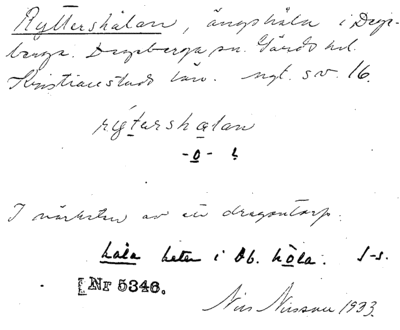 Ryttershålan, ängshåla i Dege-
berga. Degeberga sn. Gärds hd.
Kristianstads län. ngt. s.v. 16.
rytərshȯlan
-o-
I närheten av ett dragontorp.
håla heter i Db. hȯla. J-s.
[Nr 5346.
Nils Nilsson 1933.